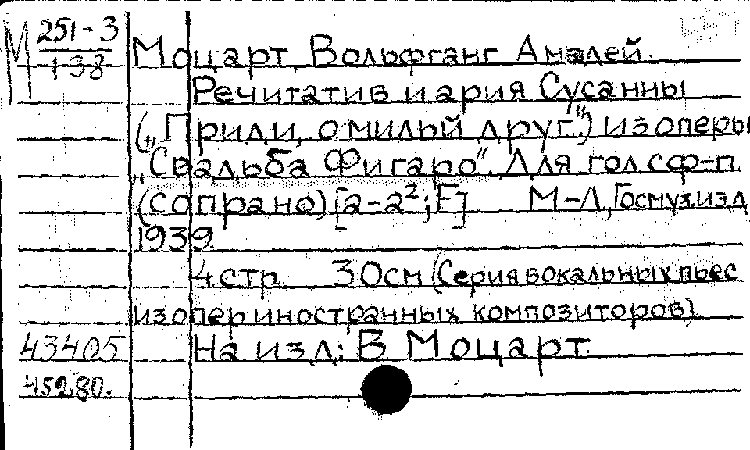 М 251-3
138
Моцарт, Вольфганг Амадей.
Речитатив и ария Сусанны
(„Приди, о милый друг.") из оперы
„Свадьба Фигаро". Для гол с ф-п.
(сопрано) [a-a²; F] М-Л, Госмузизд
1939.
4 стр. 30см (Серия вокальных пьес
из опер иностранных композиторов)
43405 На изд: В. Моцарт.
45280.